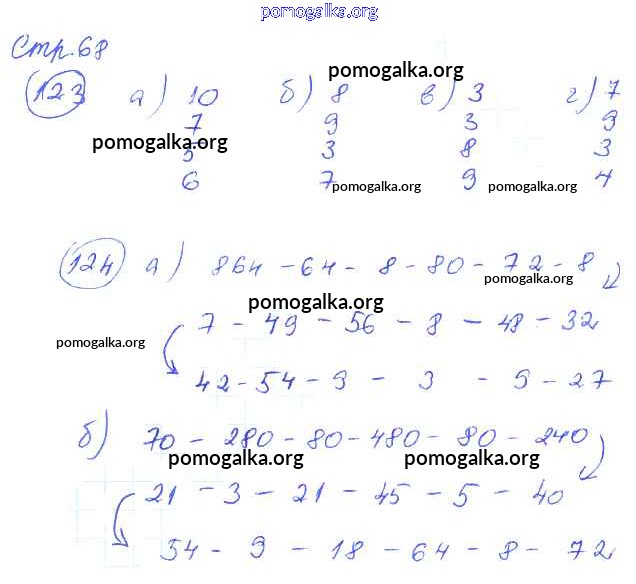 pomogalka.org
Стр. 68
pomogalka.org
123 а) 10 б) 8 в) 3 г) 7
7 9 3 9
pomogalka.org
5 3 8 3
6 7 9 4
pomogalka.org pomogalka.org
124 а) 864 - 64 - 8 - 80 - 72 - 8
pomogalka.org
pomogalka.org
7 - 49 - 56 - 8 - 48 - 32
pomogalka.org
42 - 54 - 9 - 3 - 9 - 27
б) 70 - 280 - 80 - 480 - 80 - 240
pomogalka.org pomogalka.org
21 - 3 - 21 - 45 - 5 - 40
54 - 9 - 18 - 64 - 8 - 72